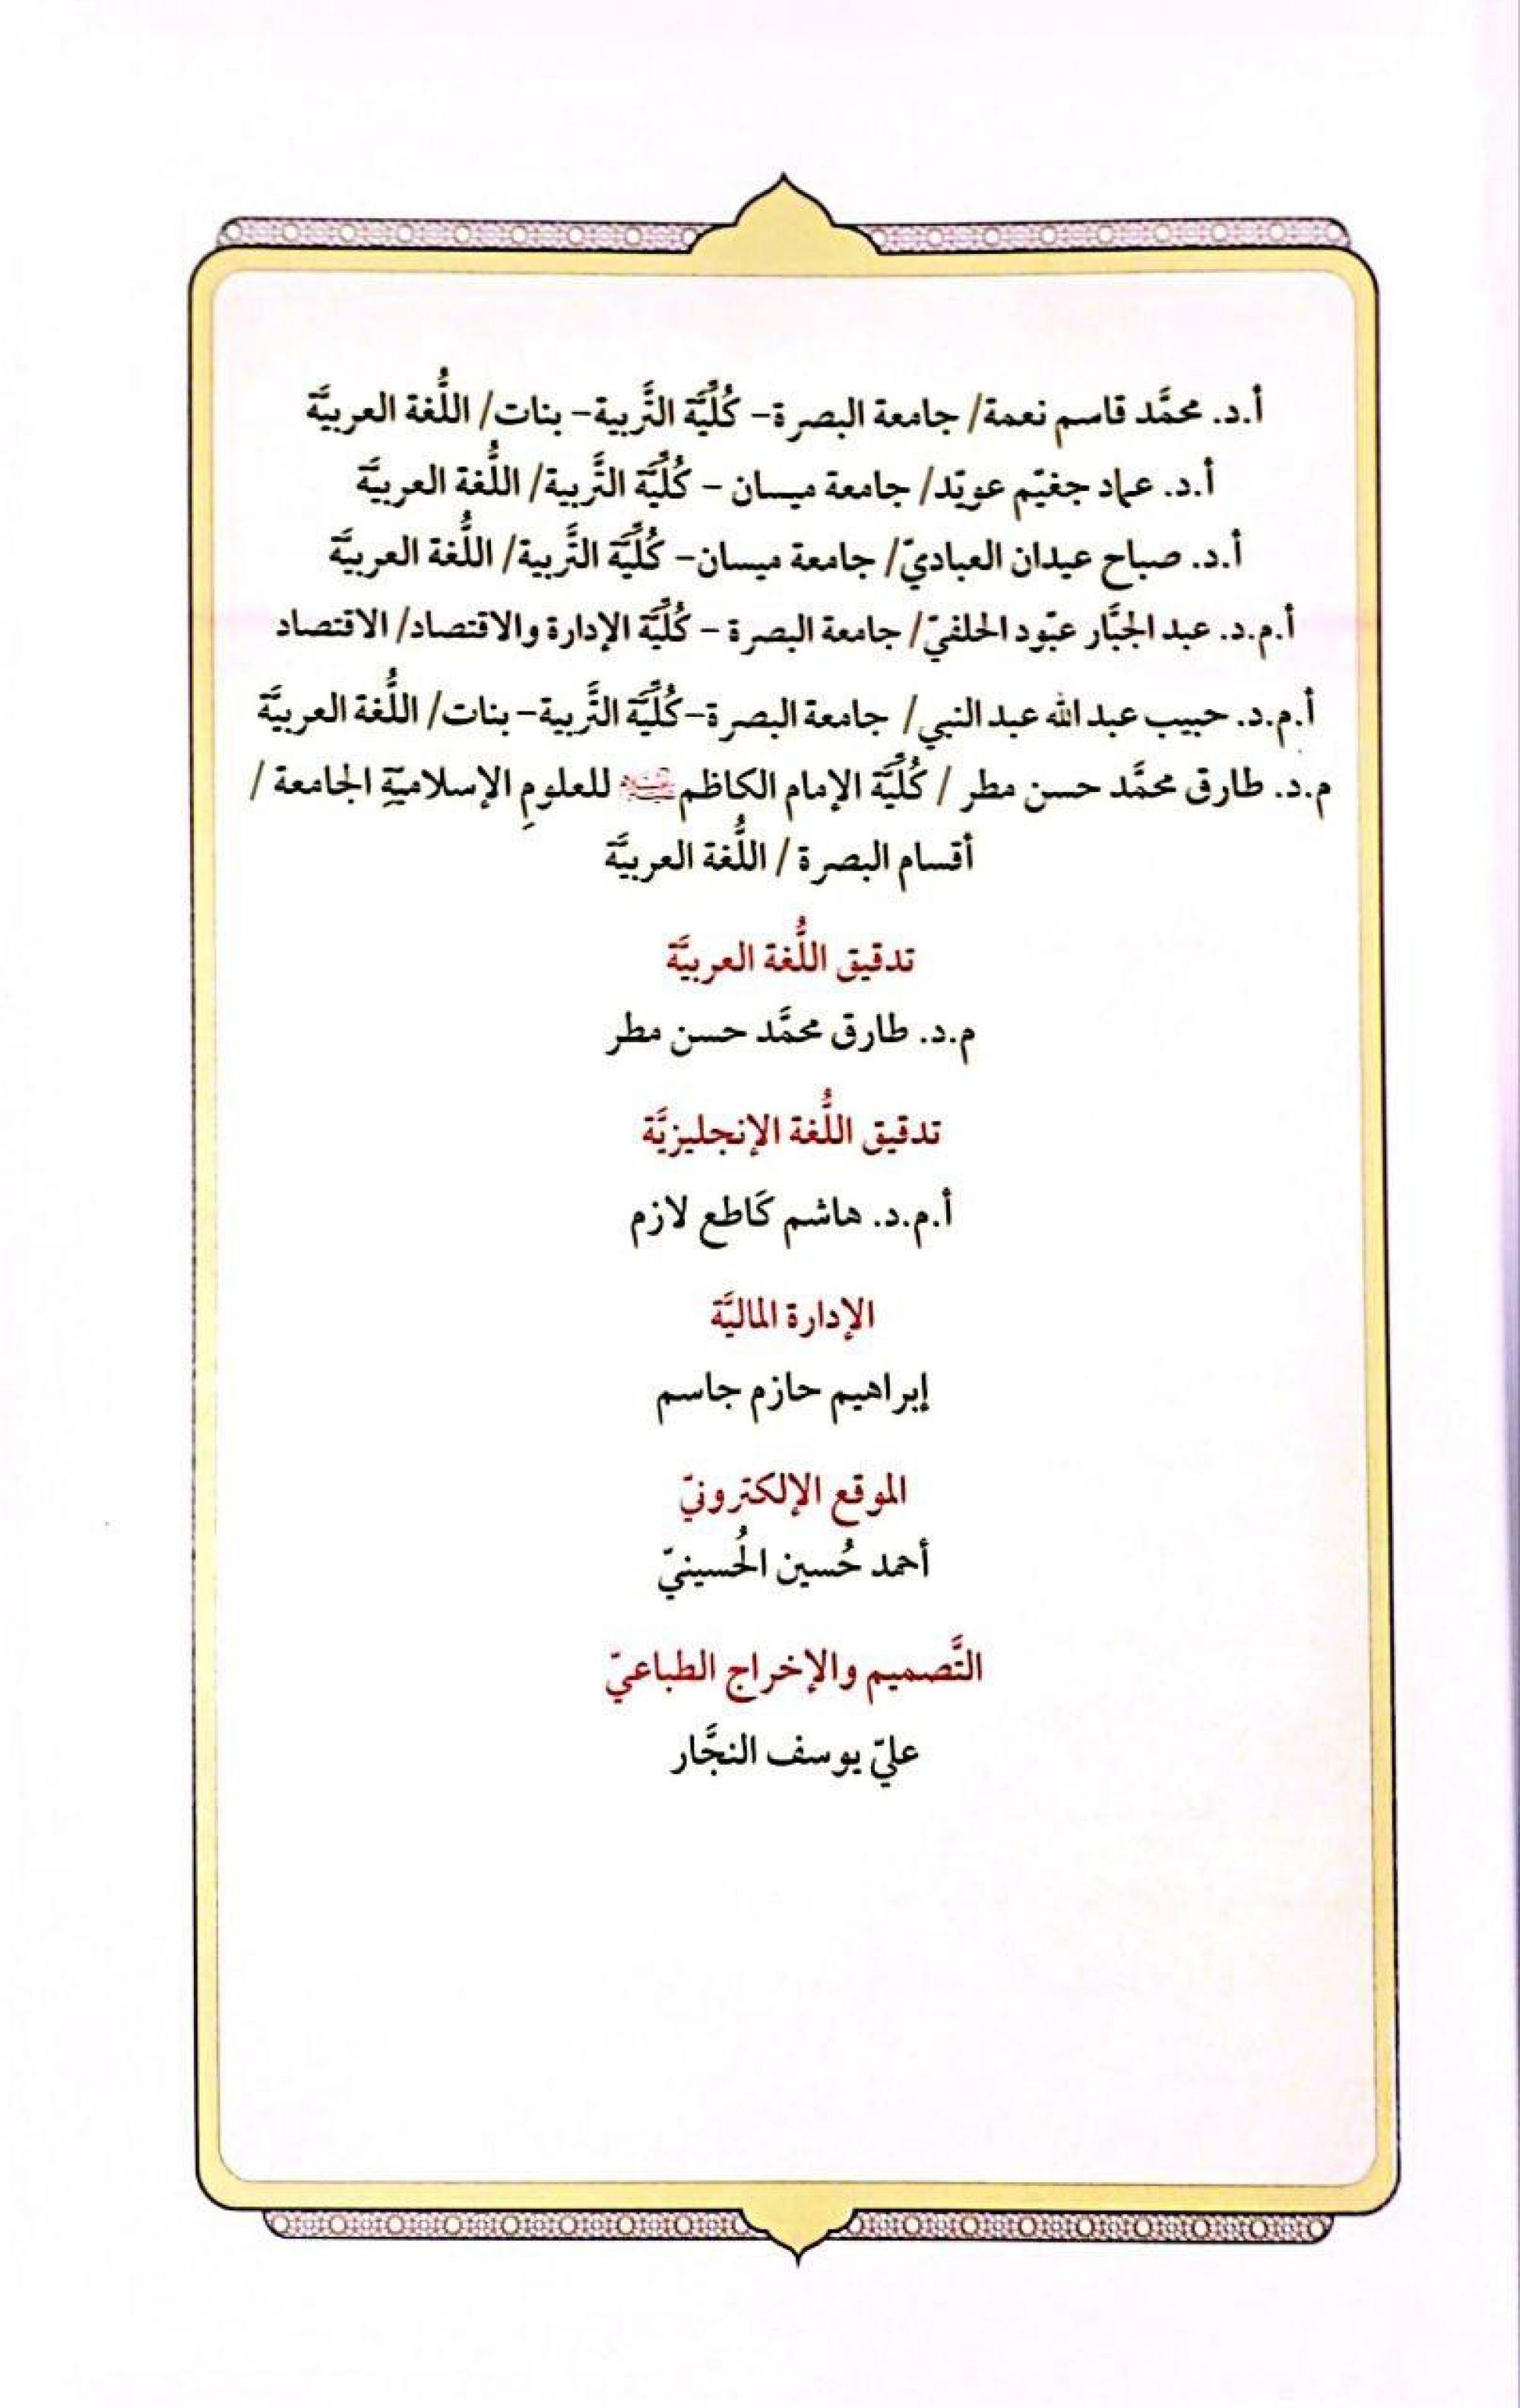 أ.د. محمَّد قاسم نعمة/ جامعة البصرة- كُلِّيَّة التَّربية- بنات/ اللُّغة العربيَّة
أ.د. عماد جغيّم عويّد/ جامعة ميسان - كُلِّيَّة التَّربية/ اللُّغة العربيَّة
أ.د. صباح عيدان العباديّ/ جامعة ميسان- كُلِّيَّة التَّربية/ اللُّغة العربيَّة
أ.م.د. عبد الجبَّار عبّود الحلفيّ/ جامعة البصرة - كُلِّيَّة الإدارة والاقتصاد/ الاقتصاد
أ.م.د. حبيب عبد الله عبد النبي/ جامعة البصرة-كُلِّيَّة التَّربية- بنات/ اللُّغة العربيَّة
م.د. طارق محمَّد حسن مطر / كُلِّيَّة الإمام الكاظم للعلومِ الإسلاميّةِ الجامعة /
أقسام البصرة / اللُّغة العربيَّة
تدقيق اللُّغة العربيَّة
م.د. طارق محمَّد حسن مطر
تدقيق اللُّغة الإنجليزيَّة
أ.م.د. هاشم كَاطع لازم
الإدارة الماليَّة
إبراهيم حازم جاسم
الموقع الإلكترونيّ
أحمد حُسين الحُسينيّ
التَّصميم والإخراج الطباعيّ
عليّ يوسف النجَّار